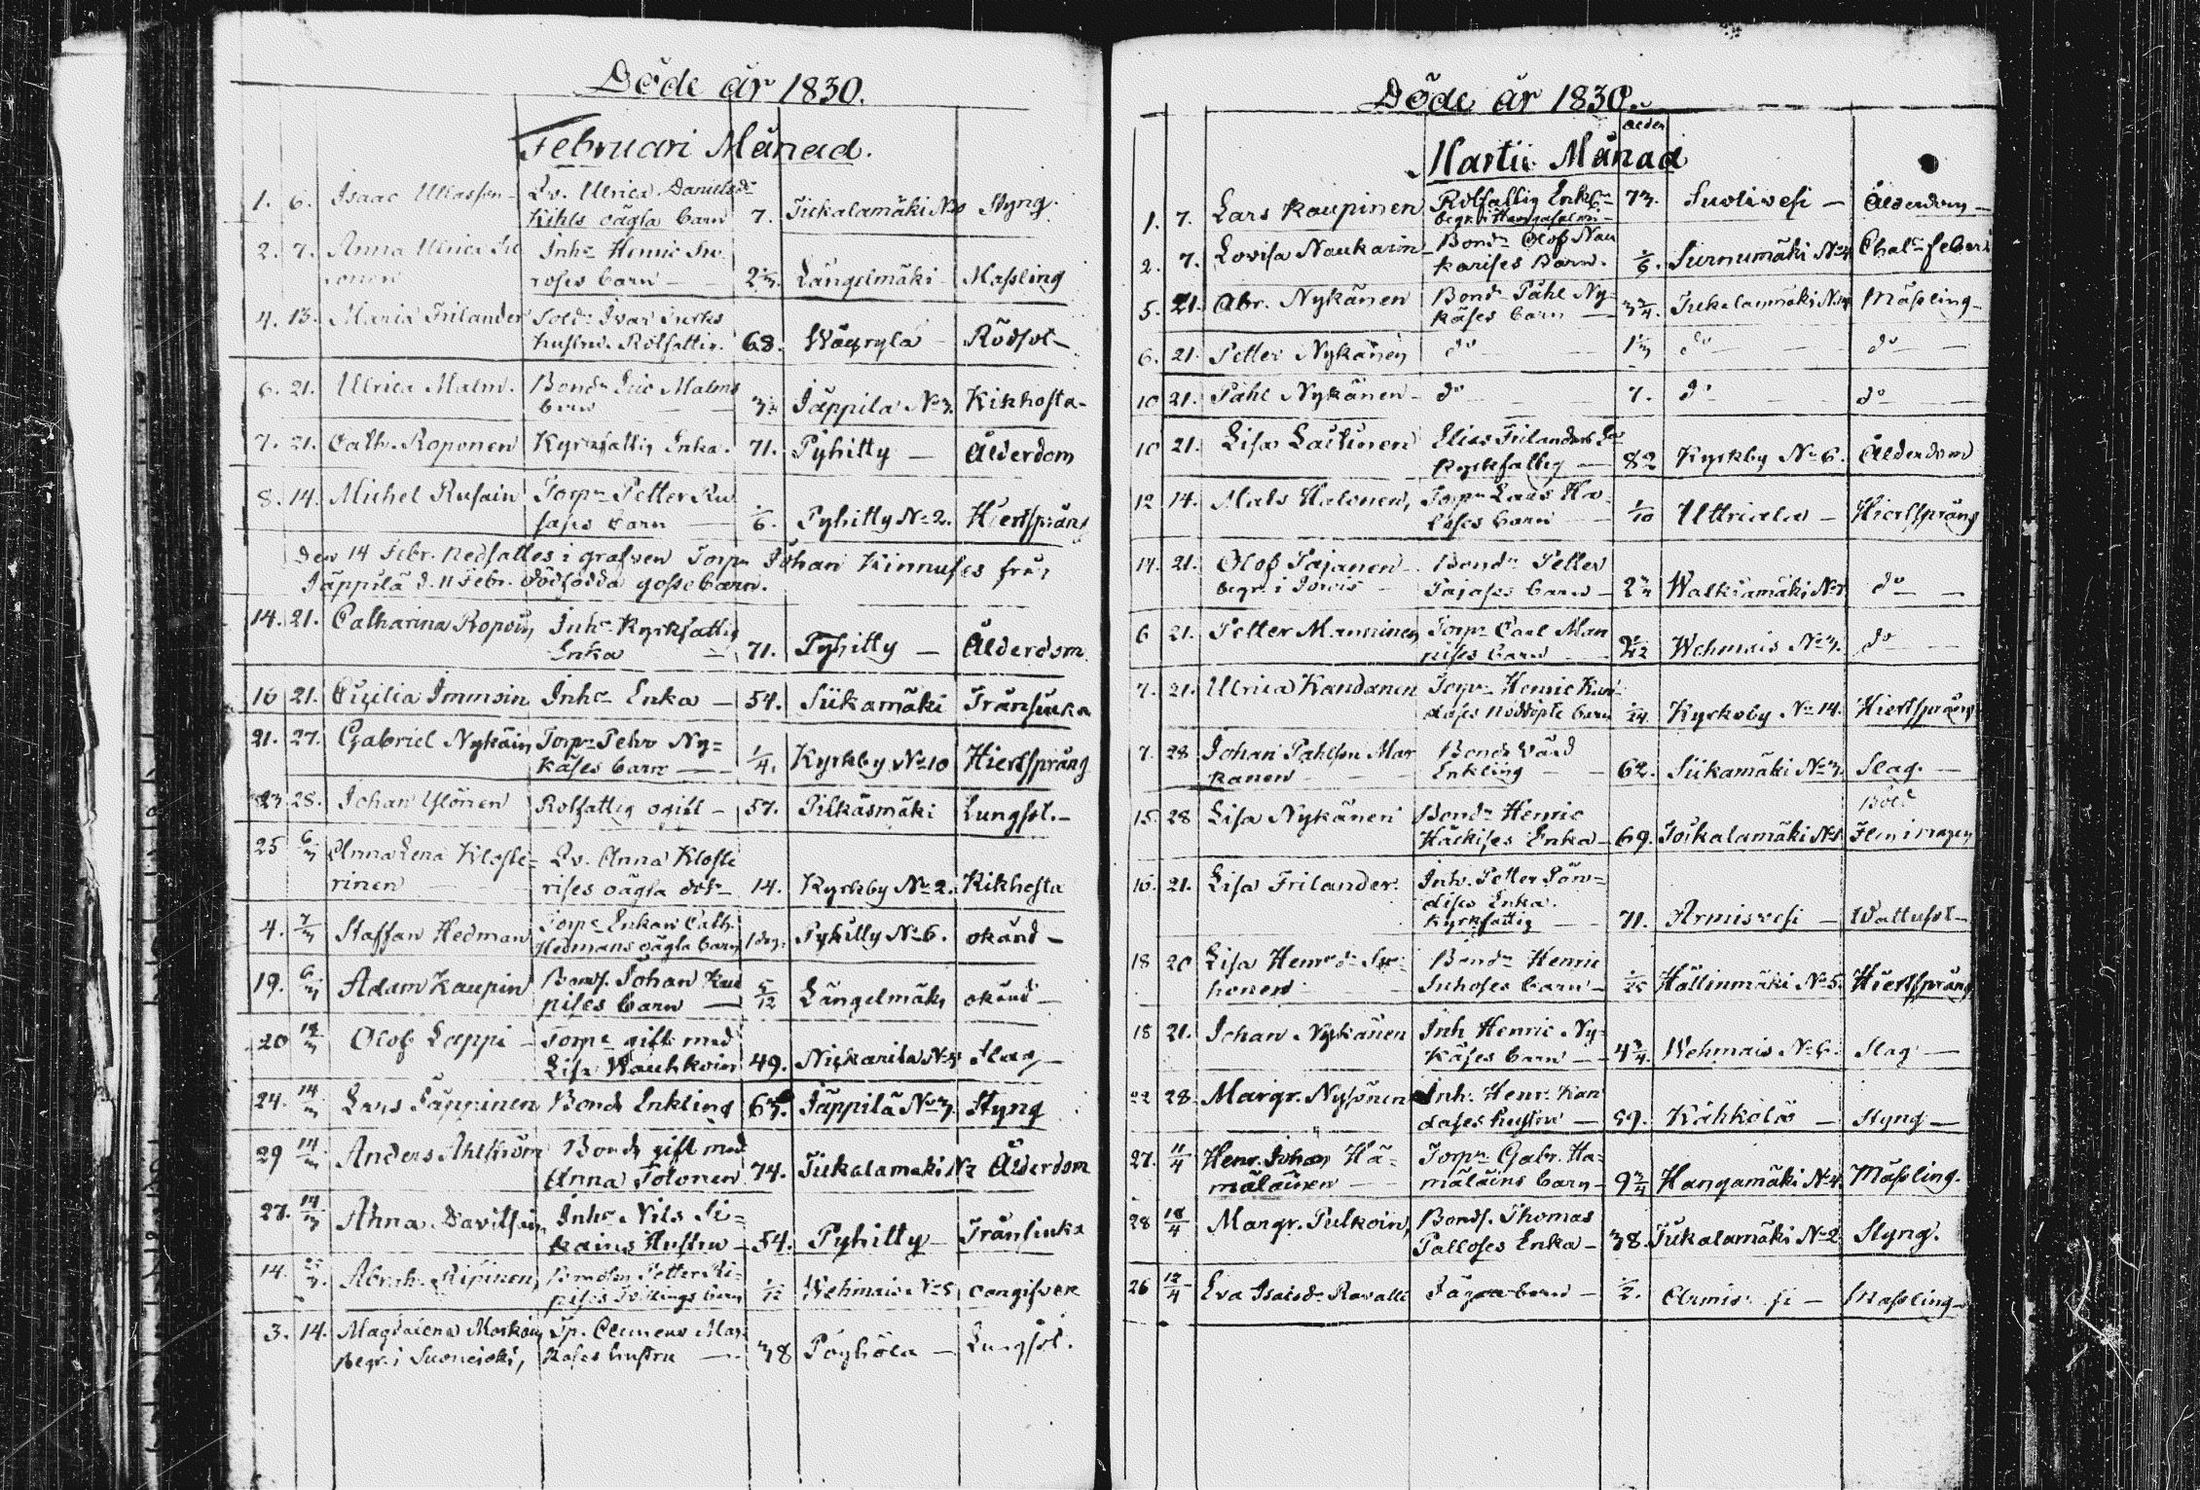 Döde år 1830.
Februari Månad.
1. 6. Isaac Ulasson Qv. Ulrica Danielsdr
Kihls oägta barn 7. Tiikalamäki Styng.
2. 7. Anna Ulrica
onen Inhs Henric
roses barn Längelmäki Massling
4. 13. Maria Frilander Sold:
hustru. Rotfattig. 68. Rödsot
6. 21. Ulrica Malm. Bond: Malms
barn Jäppilä No 3. Kikhosta
7. 21. Cath. Roponen Kyrkfattig Enka. 71. Pyhitty Ålderdom
8. 14. Michel Rusain Torpn Petter Ru
sases barn 1/6. Pyhitty No 2. Hiertsprång
Den 14 Febr. nedsattes i grafven Torpn Johan Kinnuses från
Jäppilä d. 11 Febr. dödfödda gossebarn.
14. 21. Catharina Ropoin, Inhs Kyrkfattig
Enka 71. Pyhitty Ålderdom
16 21. Cecilia Immoin Inhs Enka 54. Siikamäki Trånsiuka
21. 27. Gabriel Nykäin Torpn Pehr Ny=
käses barn 1/4. Kyrkby No 10 Hiertsprång
23 28. Johan Ylönen Rotfattig ogift 57. Pitkäsmäki Lungsot.
25 6/3 Anna Lena Kloste=
rinen Qv. Anna Kloste
rises oägta dotr 14. Kyrkby No 2. Kikhosta
4. 7/3 Staffan Hedman Torps Enkan Cath.
Hedmans oägta barn 1 dag. Pyhitty No 6. okänd
19. 6/3 Adam Kaupin Bonds. Johan Kau
pises barn 5/12 Längelmäki okänd
20 14/3 Olof Lappi Torpr gift med
Lisa Wauhkoin 49. Nickarila No 5 Slag
24. 14/3 Lars Jäppinen Bonde Enkling 67. Jäppilä No 3. Styng
29 14/3 Anders Ahlström Bonde gift med
Anna Tolonen 74. Tiikalamäki No Ålderdom
27. 14/3 Anna Davitsain Inhs Nils Si=
kains Hustru 54. Pyhitty Trånsiuka
14. Abrah. Ripinen, Petter Ri=
pises Tvillings barn 1/12 Wehmais No 5 oangifven
3. 14. Magdalena Moskain, Tp. Clemens Mos
begr. i Suonejoki, koses hustru 38 Pöyhölä Lungsot.
Döde år 1830.
ålder
Martii Månad
1. 7. Lars Kaupinen Rotfattig Enkl:
begr. i Hangasalmi 73. Suolivesi Ålderdom
2. 7. Lovisa Naukarin Bondn Olof Nau
karises Barn. 1/6. Surnumäki No 4 Chal. feber
5. 21. Abr. Nykänen Bondn Påhl Ny
käses barn 3 3/4. Tiikalamäki No Mässling
6. 21. Petter Nykänen do do do
10 21. Påhl Nykänen do 7. do do
10 21. Lisa Laitinen Elias Frilanders
Kyrkfattig 82 Kyrkby No 6. Ålderdom
12 14. Mats Halonen, Torpn Lars Ha
loses barn 1/10 Uttriala Hiertsprång
14. 21. Olof Pajanen Bondn Petter
begr. i Jorois Pajases barn Walkiamäki No do
6 21. Petter Manninen Torpn Carl Man
nises barn Wehmais No 3. do
7. 21. Ulrica Kandanen Torpn Henric Kan
dases nöddöpte barn 1/24. Kyrkby No 14. Hiertsprång
7. 28 Johan Påhlson Mar
kanen Bonde Värd
Enkling 62. Siikamäki No 3. Slag.
15 28 Lisa Nykänen Bondn Henric
Häckises Enka 69. Tiikalamäki No Böld
i magen
16. 21. Lisa Frilander. Inh. Petter Pön=
dises Enka.
Kyrkfattig 71. Armisvesi Wattusot
18 20 Lisa Henrsdr Su=
honen Bondn Henric
Suhoses barn 1/25 Hällinmäki No 5. Hiertsprång
18 21. Johan Nykänen Inh Henric Ny=
käses barn 4 3/4. Wehmais No 6. Slag
22 28. Margr. Nyssönen Inh. Henr. Kan
dases hustru 59. Kähkölä Styng
27. 11/4 Henr. Johan Hä=
mäläinen Torpn Gabr. Hä=
mäläins barn 9 3/4 Hangamäki No 4. Mässling.
28 18/4 Margr. Pulkoin, Bonds. Thomas
Palloses Enka 38. Tiikalamäki No 2 Styng.
26 12/4 Eva Isacsdr barn 1/2. Massling